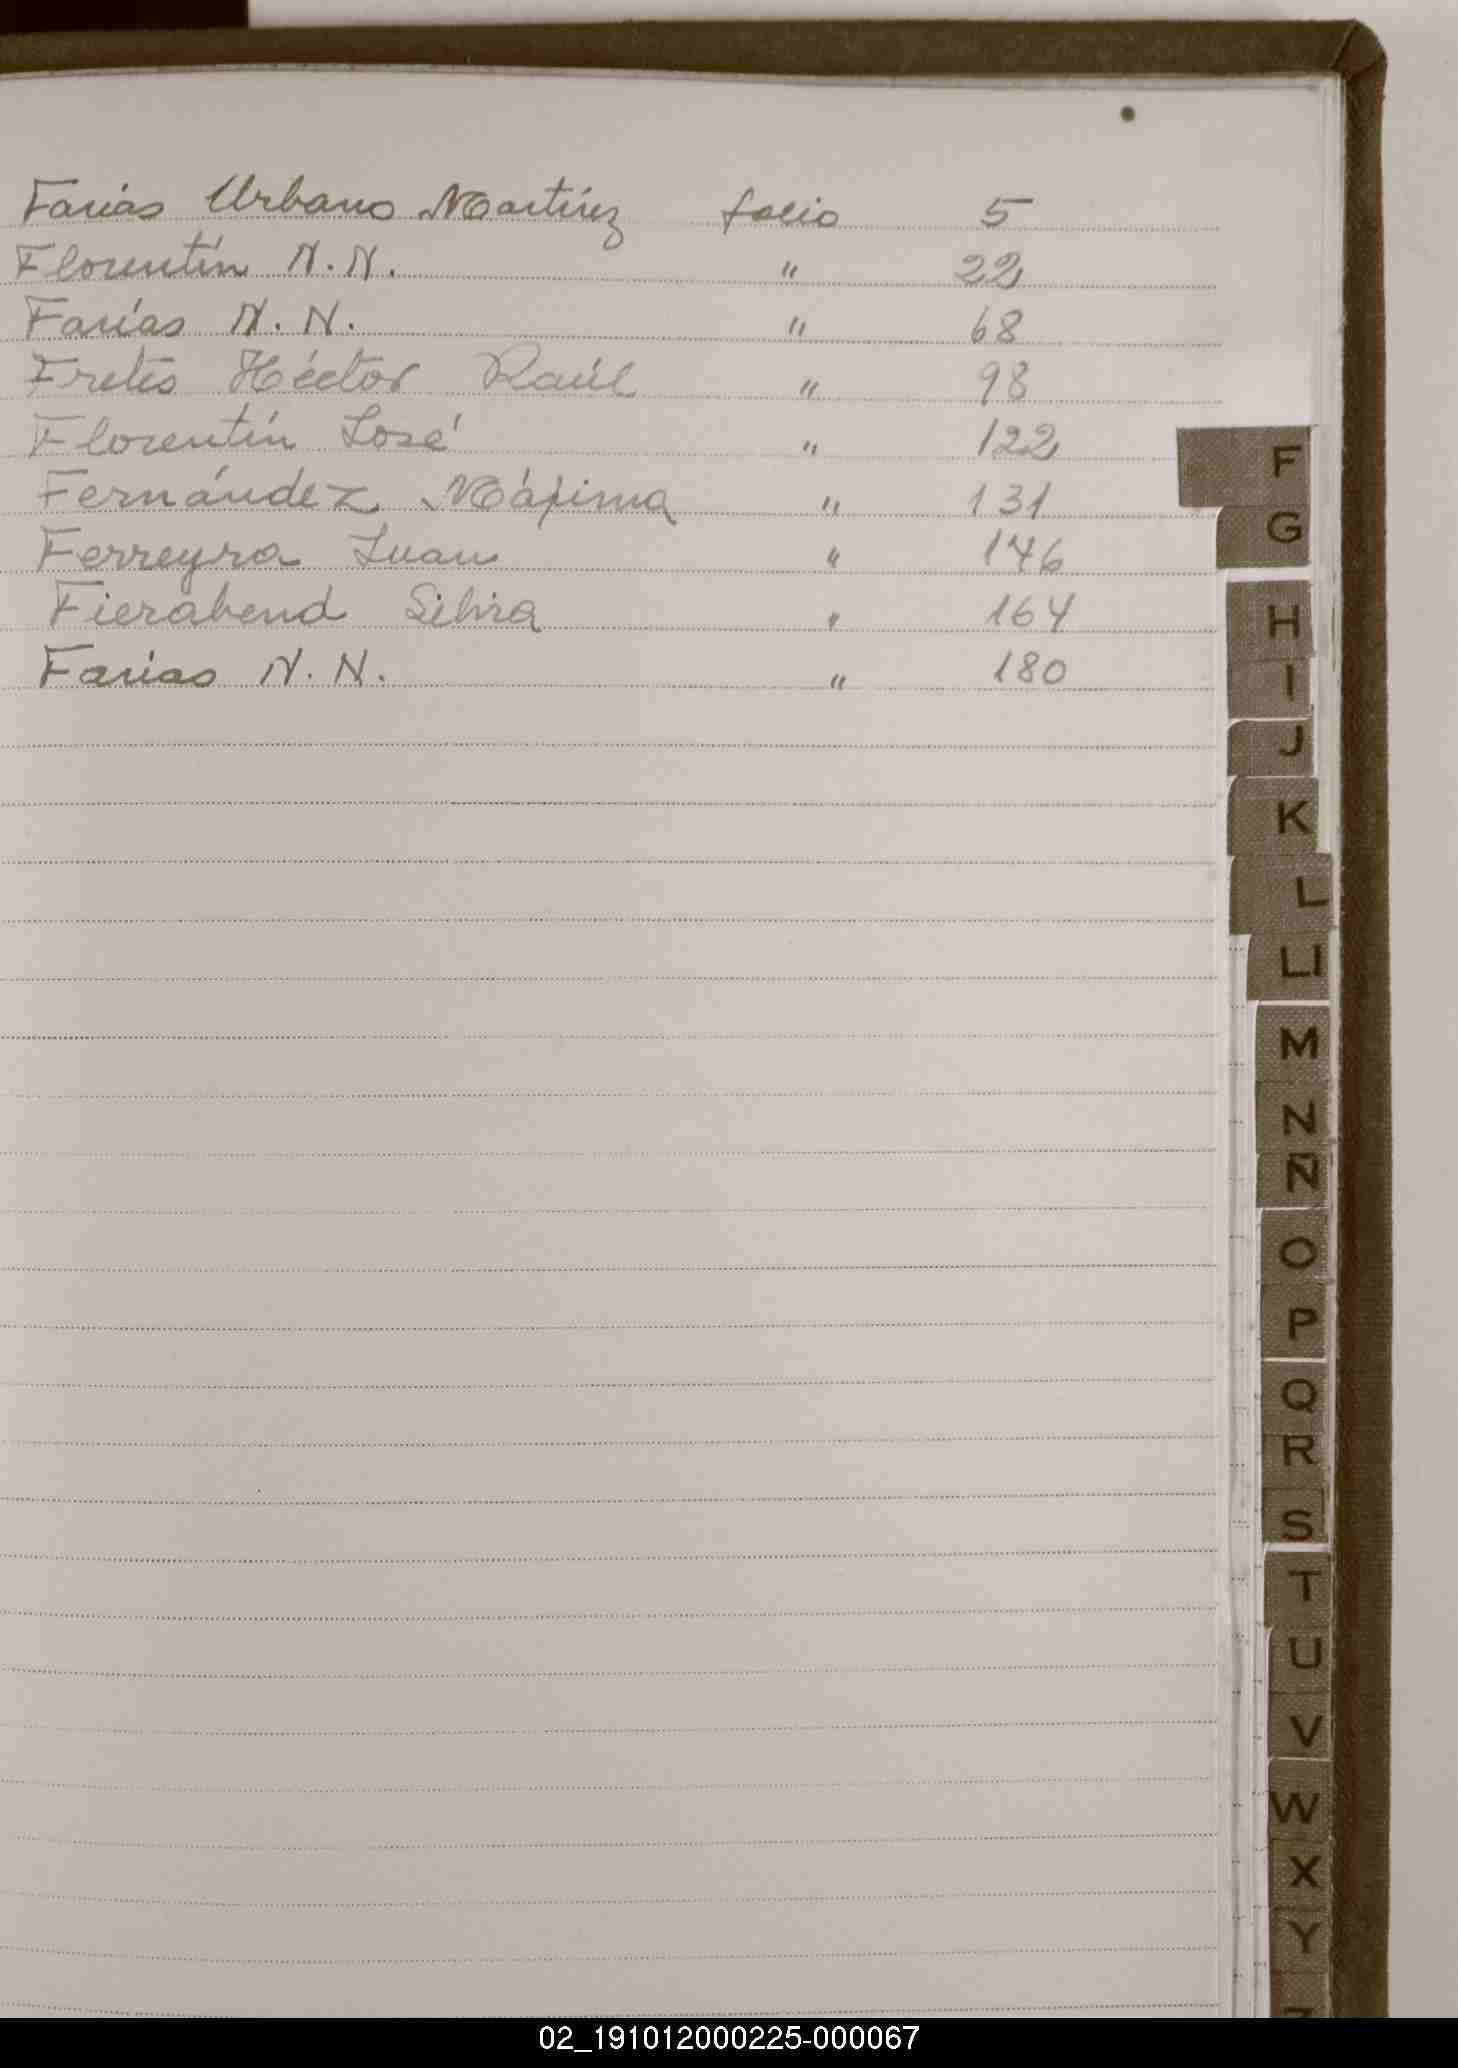 Farias Urbano Martínez folio 5
Florentín N.N. " 22
Farías N.N. " 68
Fretes Héctor Raúl " 98
Florentín José " 122
Fernández Máxima " 131
Ferreyra Juan " 146
Fierabend Silvia " 164
Farias N.N. " 180
F
G
H
I
J
K
L
Ll
M
N
Ñ
O
P
Q
R
S
T
U
V
W
X
Y
Z
02_191012000225-000067